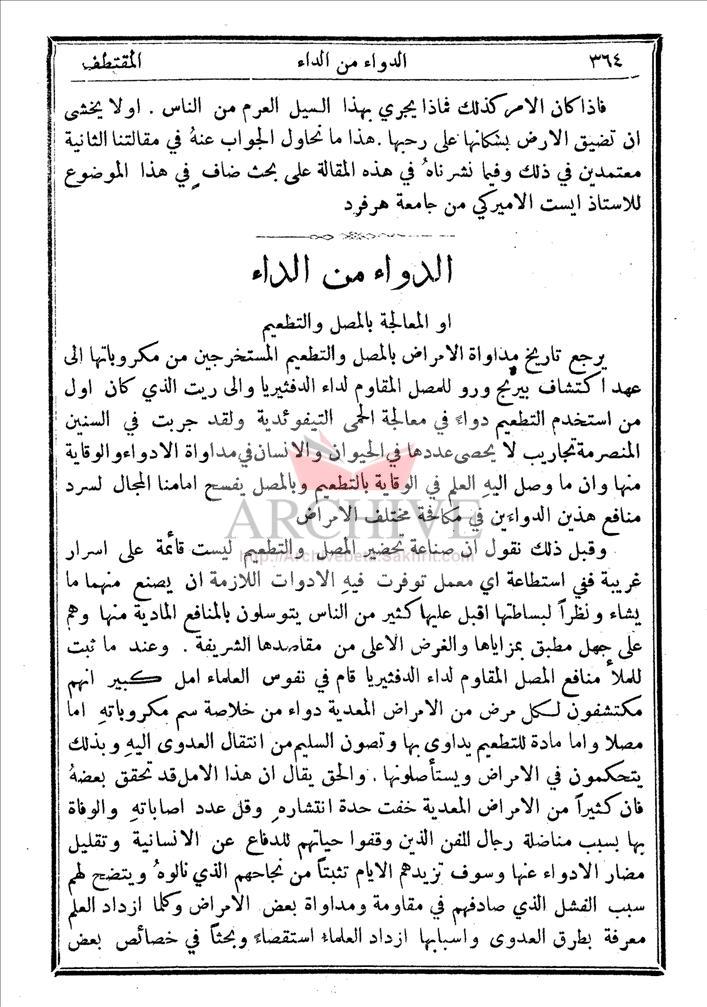 ٣٦٤ الدواء من الداء المقتطف
فاذا كان الامر كذلك فماذا يجري بهذا السيل العرم من الناس . اولا يخشى
ان تضيق الارض بسكانها على رحبها . هذا ما نحاول الجواب عنهُ في مقالتنا الثانية
معتمدين في ذلك وفيما نشرناهُ في هذه المقالة على بحث ضافٍ في هذا الموضوع
للاستاذ ايست الاميركي من جامعة هرفرد
الدواء من الداء
او المعالجة بالمصل والتطعيم
يرجع تاريخ مداواة الامراض بالمصل والتطعيم المستخرجين من مكروباتها الى
عهد اكتشاف بيرنج ورو للمصل المقاوم لداء الدفثيريا والى ريت الذي كان اول
من استخدم التطعيم دواءً في معالجة الحمى التيفوئدية ولقد جربت في السنين
المنصرمة تجاريب لا يحصى عددها في الحيوان والانسان في مداواة الادواء والوقاية
منها وان ما وصل اليهِ العلم في الوقاية بالتطعيم وبالمصل يفسح امامنا المجال لسرد
منافع هذين الدواءَين في مكافحة مختلف الامراض
ARCHIVE
http://Archivebeta.Sakhrit.com
وقبل ذلك نقول ان صناعة تحضير المصل والتطعيم ليست قائمة على اسرار
غريبة ففي استطاعة اي معمل توفرت فيهِ الادوات اللازمة ان يصنع منهما ما
يشاء ونظراً لبساطتها اقبل عليها كثير من الناس يتوسلون بالمنافع المادية منها وهم
على جهل مطبق بمزاياها والغرض الاعلى من مقاصدها الشريفة . وعند ما ثبت
للملأ منافع المصل المقاوم لداء الدفثيريا قام في نفوس العلماء امل كبير انهم
مكتشفون لكل مرض من الامراض المعدية دواء من خلاصة سم مكروباتهِ اما
مصلا واما مادة للتطعيم يداوى بها وتصون السليم من انتقال العدوى اليهِ وبذلك
يتحكمون في الامراض ويستأصلونها . والحق يقال ان هذا الامل قد تحقق بعضهُ
فان كثيراً من الامراض المعدية خفت حدة انتشارهِ وقل عدد اصاباتهِ والوفاة
بها بسبب مناضلة رجال الفن الذين وقفوا حياتهم للدفاع عن الانسانية وتقليل
مضار الادواء عنها وسوف تزيدهم الايام تثبتاً من نجاحهم الذي نالوهُ ويتضح لهم
سبب الفشل الذي صادفهم في مقاومة ومداواة بعض الامراض وكلما ازداد العلم
معرفة بطرق العدوى واسبابها ازداد العلماء استقصاءً وبحثاً في خصائص بعض